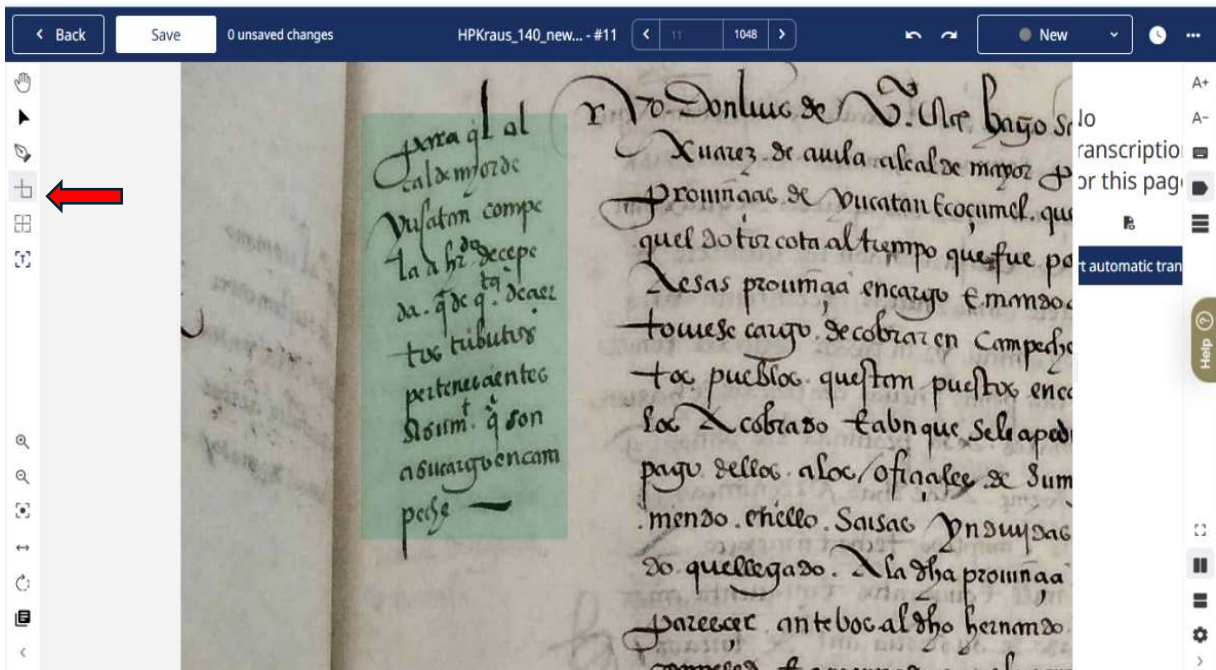 Back
Save
0 unsaved changes
HPKraus_140_new... - #11
11
1048
New
A+
A-
No
transcriptio
or this pag
rt automatic tran
Help
para ql al
cal de myor de
yucatan compe
la a hrdo de cepe
da. q de qta. de aer
tos tributos
pertenecientes
a su mt. q son
a su cargo en cam
peche
Yo Don luis de Vo. Uce hago S
Xuarez. de auila alcalde mayor
prouinçias de yucatan E coçumel. que
quel dotor cota al tiempo que fue po
A esas prouinçia encargo E mando
touiese cargo. de cobrar en Campeche
tos pueblos. questan puestos en
los A cobrado E avn que se le a pedi
pago dellos. a los ofiçiales de Su m
mendo. en ello. Saisas ynduydas
do que llegado. A la dha prouinçia
paresçer ante bos al dho hernando